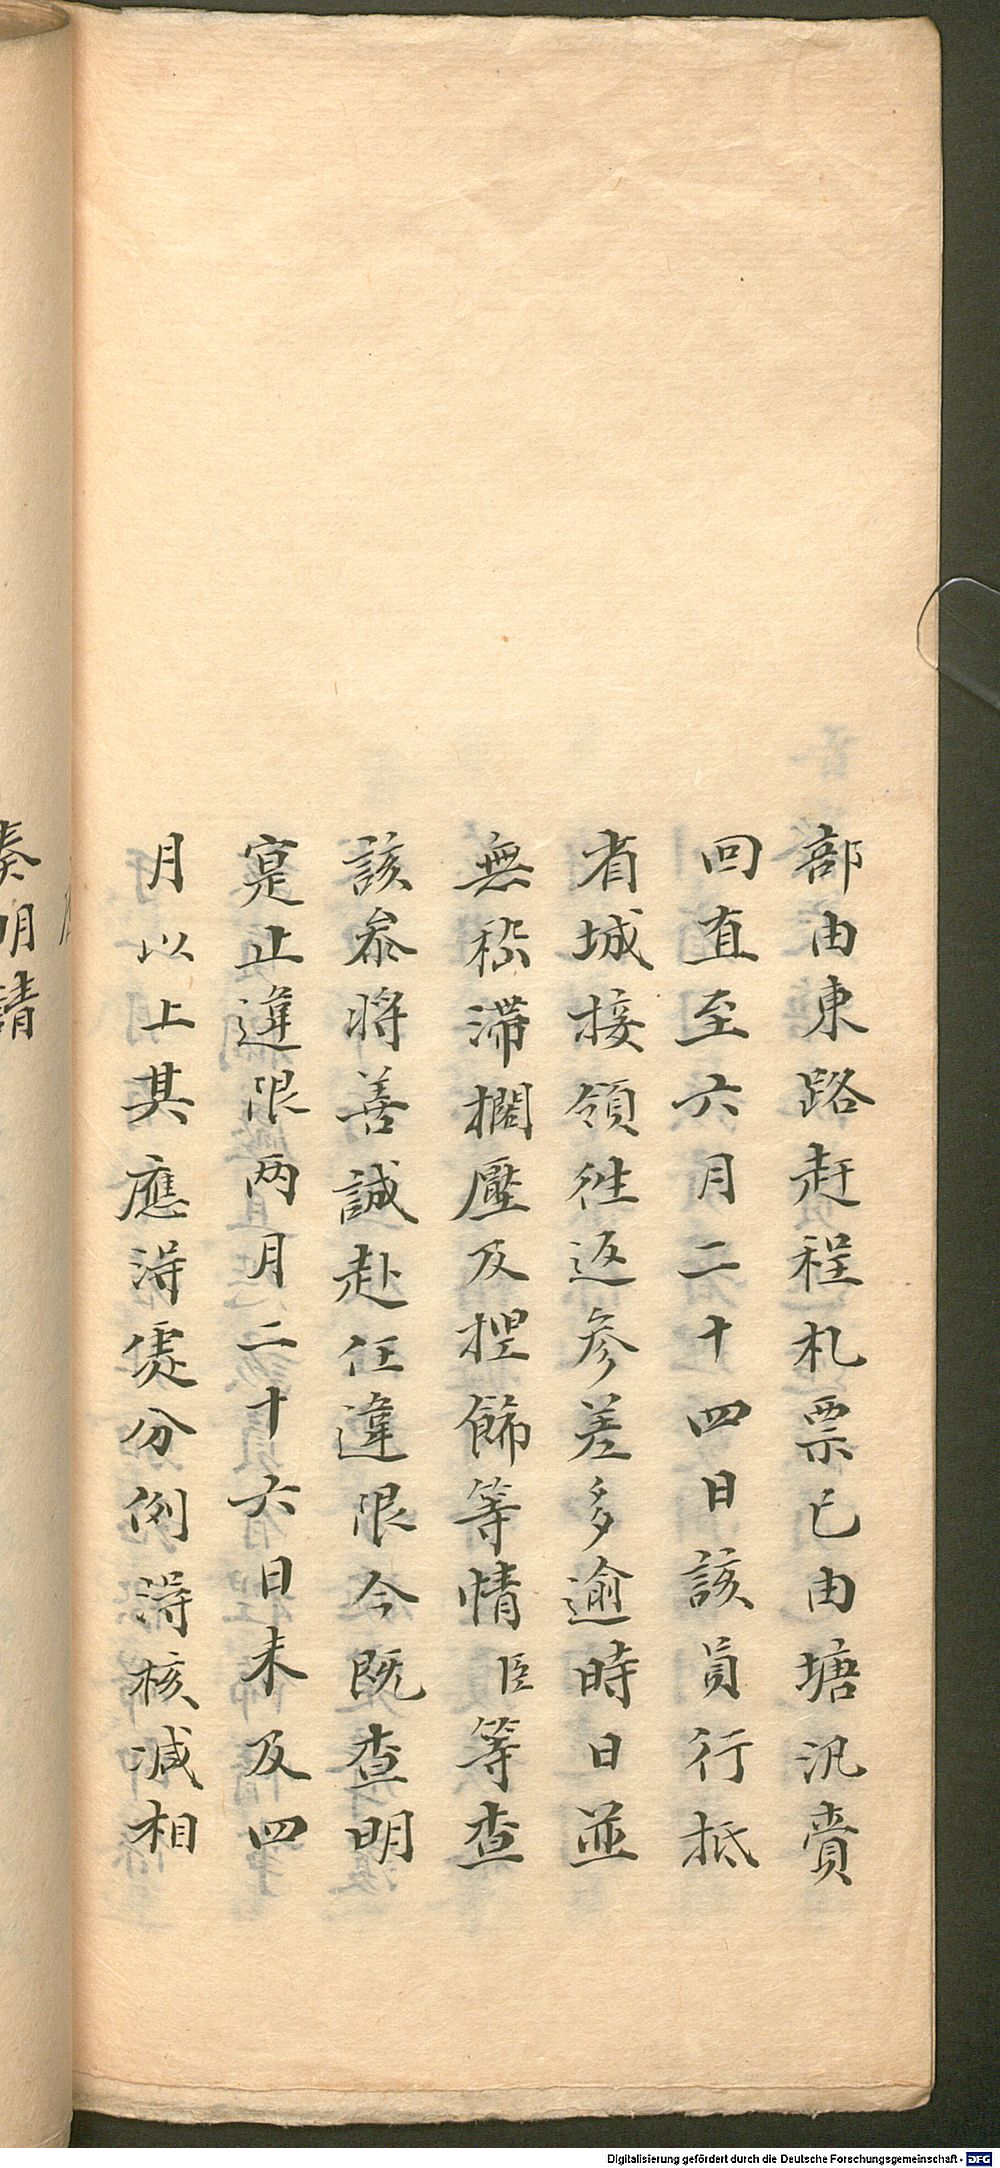 部由東路赶程札票已由塘汛賫
回直至六月二十四日該員行抵
省城接領往返參差多逾時日並
無稽滯擱壓及捏飾等情臣等查
該叅將善誠赴任違限今既查明
寔止違限两月二十六日未及四
月以上其應得處分例得核减相
奏明請
Digitalisierung gefördert durch die Deutsche Forschungsgemeinschaft - DFG